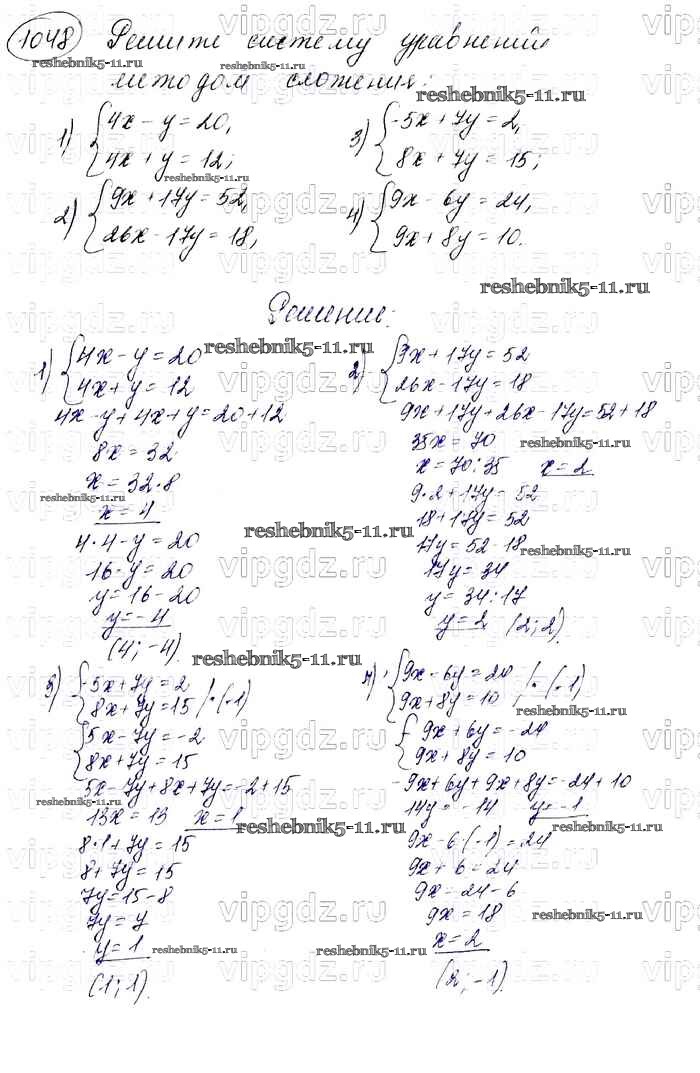 1048 Решите систему уравнений
методом сложения:
1) { 4x - y = 20,
4x + y = 12;
2) { 9x + 17y = 52,
26x - 17y = 18,
3) { -5x + 7y = 2,
8x + 7y = 15;
4) { 9x - 6y = 24,
9x + 8y = 10.
Решение:
1) { 4x - y = 20
4x + y = 12
4x - y + 4x + y = 20 + 12
8x = 32
x = 32 : 8
x = 4
4 · 4 - y = 20
16 - y = 20
y = 16 - 20
y = -4
(4; -4).
2) { 9x + 17y = 52
26x - 17y = 18
9x + 17y + 26x - 17y = 52 + 18
35x = 70
x = 70 : 35 x = 2
9 · 2 + 17y = 52
18 + 17y = 52
17y = 52 - 18
17y = 34
y = 34 : 17
y = 2 (2; 2).
3) { -5x + 7y = 2
8x + 7y = 15 | · (-1)
{ 5x - 7y = -2
8x + 7y = 15
5x - 7y + 8x + 7y = -2 + 15
13x = 13 x = 1
8 · 1 + 7y = 15
8 + 7y = 15
7y = 15 - 8
7y = 7
y = 1
(1; 1).
4) { 9x - 6y = 24 | · (-1)
9x + 8y = 10
{ -9x + 6y = -24
9x + 8y = 10
-9x + 6y + 9x + 8y = -24 + 10
14y = -14 y = -1
9x - 6 · (-1) = 24
9x + 6 = 24
9x = 24 - 6
9x = 18
x = 2
(2; -1).
reshebnik5-11.ru
vipgdz.ru